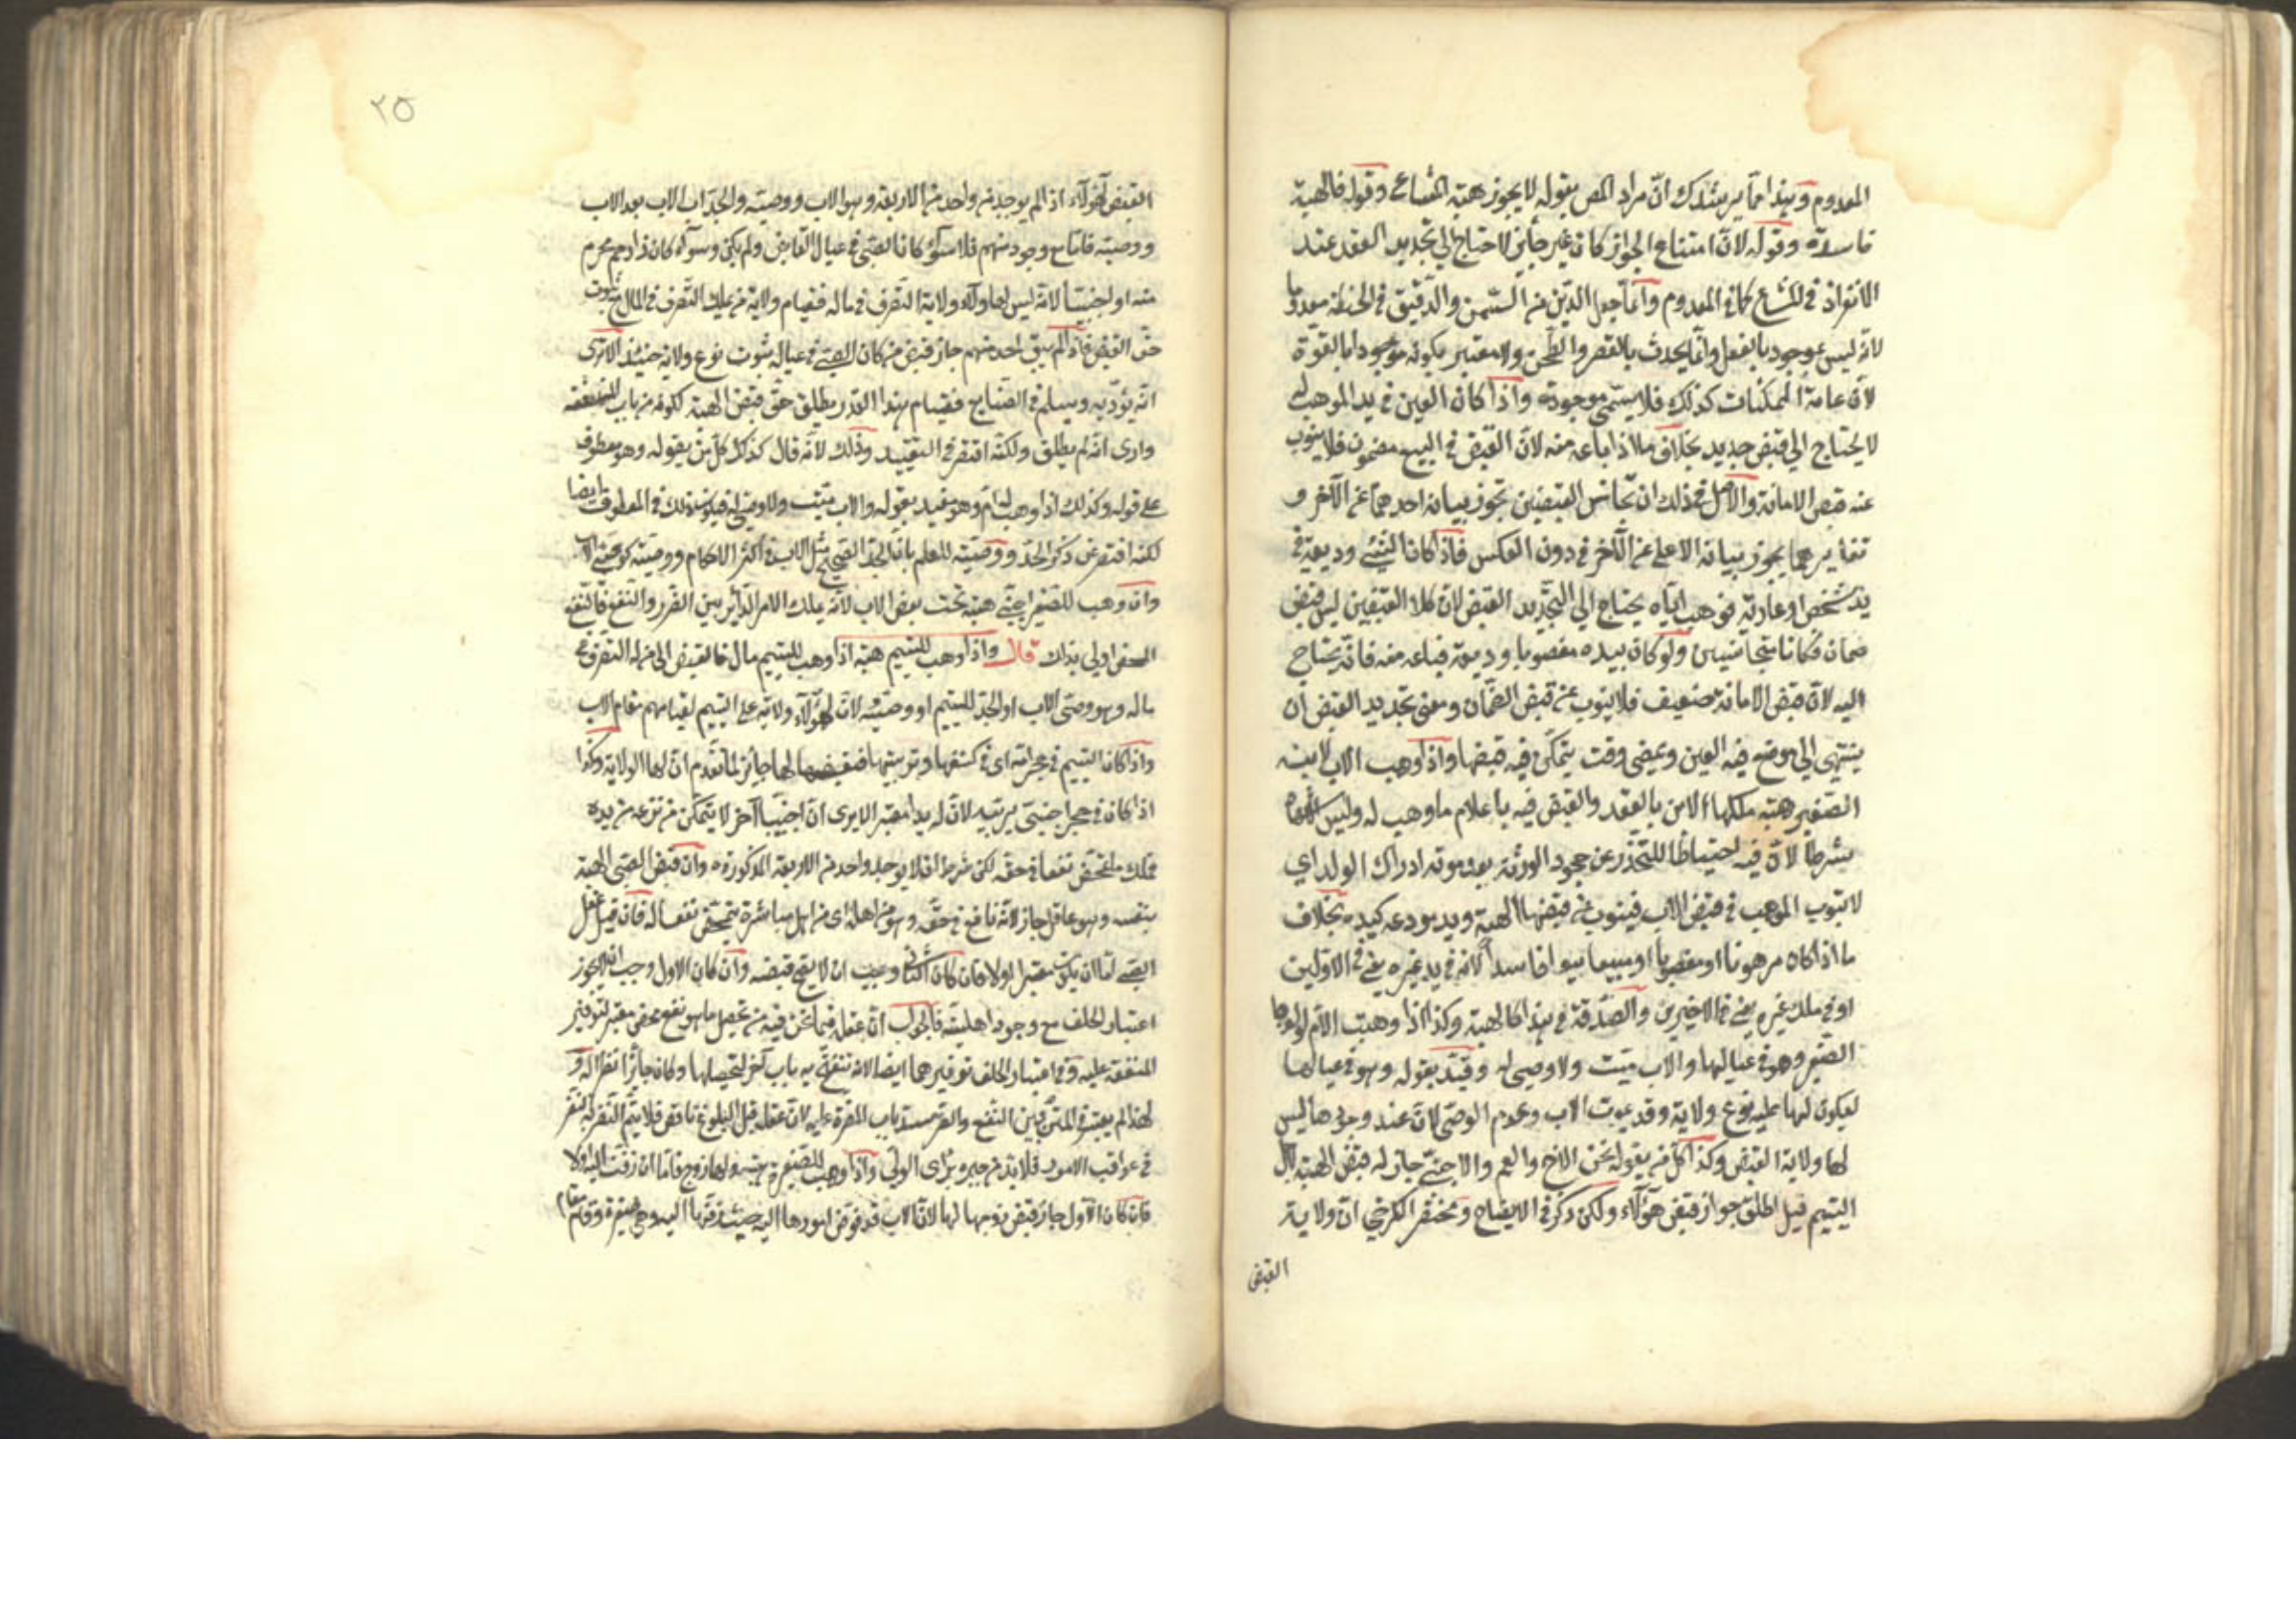 المعدوم وهذا مما يرشدك ان مراد المص بقوله لا يجوز هبة المشاع وقوله فالهبة
فاسدة وقوله لان امتناع الجواز كان غير جايز لاحتاج الى تجديد العقد عند
الافراز في المشاع كما في المعدوم وانما جعل الدهن في السمسم والدقيق في الحنطة معدوما
لانه ليس بموجود بالفعل وانما يحدث بالعصر والطحن ولا معتبر بكونه موجودا بالقوة
لان عامة الممكنات كذلك فلا يسمى موجودة واذا كان العين في يد الموهب له
لا يحتاج الى قبض جديد بخلاف ما اذا باعه منه لان القبض في البيع مضمون فلا ينوب
عنه قبض الامانة والاصل في ذلك ان تجانس القبضين تجوز نيابة احدهما عن الآخر و
تغايرهما يجوز نيابة الاعلى عن الآخر في دون العكس فاذا كان الشيء وديعة في
يد شخص او عارية فوهب اياه يحتاج الى التجديد القبض لان كلا القبضين ليس قبض
ضمان فكانا متجانسين ولو كان بيده مغصوبا وديعة فباعه منه فانه يحتاج
اليه لان قبض الامانة ضعيف فلا ينوب عن قبض الضمان ومعنى تجديد القبض ان
ينتهى الى موضع فيه العين ويمضى وقت يتمكن فيه قبضها واذا وهب الاب لابنه
الصغير هبة ملكها الابن بالعقد والقبض فيه باعلام ما وهب له وليس الاشهاد
بشرط لان فيه احتياطا للتحذر عن جحود الورثة بعد موته ادراك الولد اي
لا بثوب الموهب في قبض الاب فينوب عن قبضها الهبة ويد مودعه كيده بخلاف
ما اذا كان مرهونا او مغصوبا او مبيعا بيعا فاسدا لانه في يد غيره يعنى في الاولين
او في ملك غيره يعنى في الاخيرين والصدقة في هذا كالهبة وكذا اذا وهبت الام لولدها
الصغير وهو في عيالها والاب ميت ولا وصى له وقيد بقوله وهو في عيالها
ليكون لها عليه نوع ولاية وقد بموت الاب وعدم الوصى لان عند وجودها ليس
لها ولاية القبض وكذا كل من يعوله نحو الاخ والعم والاجنبي جاز له قبض الهبة لاجل
اليتيم قيل اطلق جواز قبض هؤلاء ولكن ذكر في الايضاح ومختصر الكرخي ان ولاية
القبض
٢٥
القبض لهؤلاء اذا لم يوجد من واحد من الاربعة وهو الاب ووصيه والجد اب الاب بعد الاب
ووصيه فاما مع وجود منهم فلا سواء كان الصبى في عيال القابض ولم يكن وسواء كان ذا رحم محرم
منه او اجنبيا لانه ليس لهؤلاء ولاية التصرف في ماله فقيام ولاية من يملك التصرف في المال يمنع ثبوت
حق القبض فاذا لم يبق احد منهم جاز قبض من كان الصبى في عياله ثبوت نوع ولاية حينئذ الا ترى
انه يؤدبه ويسلم في الصنايع فقيام هذا القدر يطلق حق قبض الهبة لكونه من باب المنفعة
وارى انه لم يطلق ولكنه اقتصر في التقييد وذلك لانه قال كذلك كل من يعوله وهو معطوف
على قوله وكذلك اذا وهب له ام وهو مقيد بقوله والاب ميت ولا وصى له فيكون ذلك في المعطوف ايضا
لكنه اقتصر عن ذكر الجد ووصيته للعلم بان الجد الصحيح مثل الاب في اكثر الاحكام ووصيه كوصى الاب
وان وهب للصغير اجنبى هبة تمت بقبض الاب لانه يملك الامر الدائر بين الضرر والنفع فالنفع
المحض اولى بذلك قال واذا وهب لليتيم هبة اذا وهب لليتيم مال فالقبض الى من له التصرف في
ماله وهو وصى الاب او الجد لليتيم او وصيه لان لهؤلاء ولاية على اليتيم لقيامهم مقام الاب
واذا كان اليتيم في حجر امه اى في كنفها وتربيتها فقبضها لها جايز لما تقدم ان لها الولاية وكذا
اذا كان في حجر اجنبى يربيه لان له يدا معتبرا الا يرى ان اجنبيا آخر لا يتمكن من نزعه من يده
فملك ما تمحض نفعا في حقه لكن شرط ان لا يوجد واحد من الاربعة المذكورة وان قبض الصبى الهبة
بنفسه وهو عاقل جاز لانه نافع في حقه وهو من اهله اى من اهل مباشرة يتمحض نفعا له فان قيل عقل
الصبى اما ان يكون معتبرا اولا فان كان الثانى وجب ان لا يقع قبضه وان كان الاول وجب ان لا يجوز
اعتبار الخلف مع وجود اهليته فالجواب ان عقله فيما نحن فيه من تحصل ما هو نفع محض معتبر لتوفير
المنفعة عليه وفي اعتبار الخلف توفيرهما ايضا لانه تنفتح به باب آخر لتحصيلها وكان جائزا نظرا له و
لهذا لم يعتبر في المتردد بين النفع والضر سدا لباب المضرة عليه لان عقله قبل البلوغ ناقص فلا يتم النظر له بنظر
في عواقب الامور فلا بد من جبره برأى الولى واذا وهب للصغيرة هبة ولها زوج فاما ان زفت اليه اولا
فان كان الاول جاز قبض زوجها لها لان الاب قد فوض امورها اليه حيث زفها اليه وهى صغيرة وقام مقام